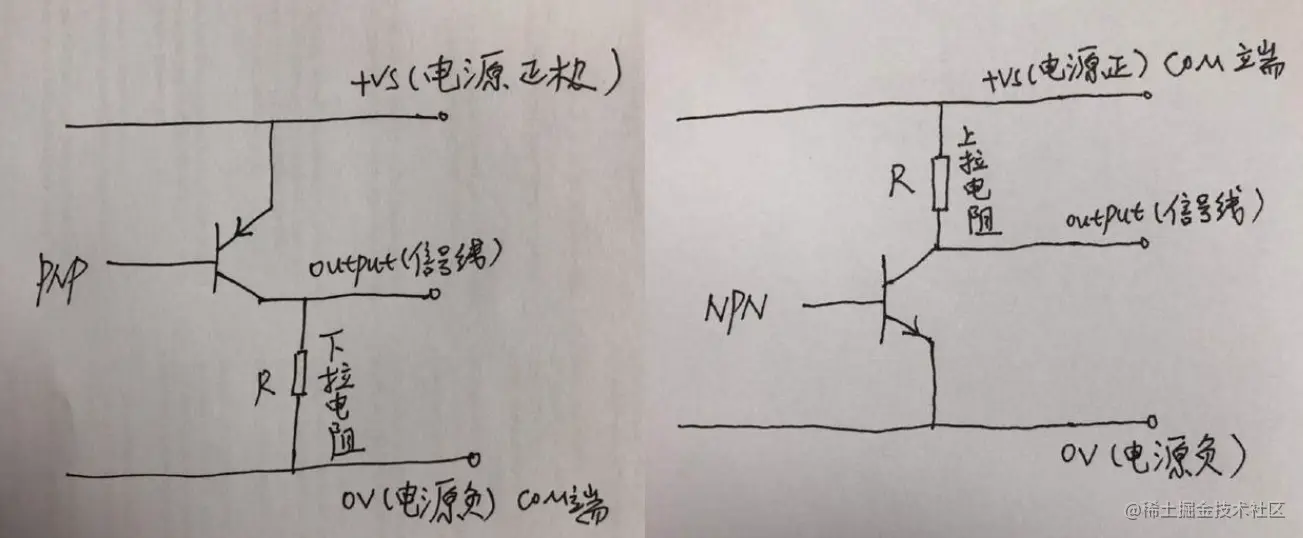 +VS(电源正极)
PNP
output(信号线)
R
下拉电阻
0V(电源负)COM端
+VS(电源正)COM端
R
上拉电阻
output(信号线)
NPN
0V(电源负)
@稀土掘金技术社区